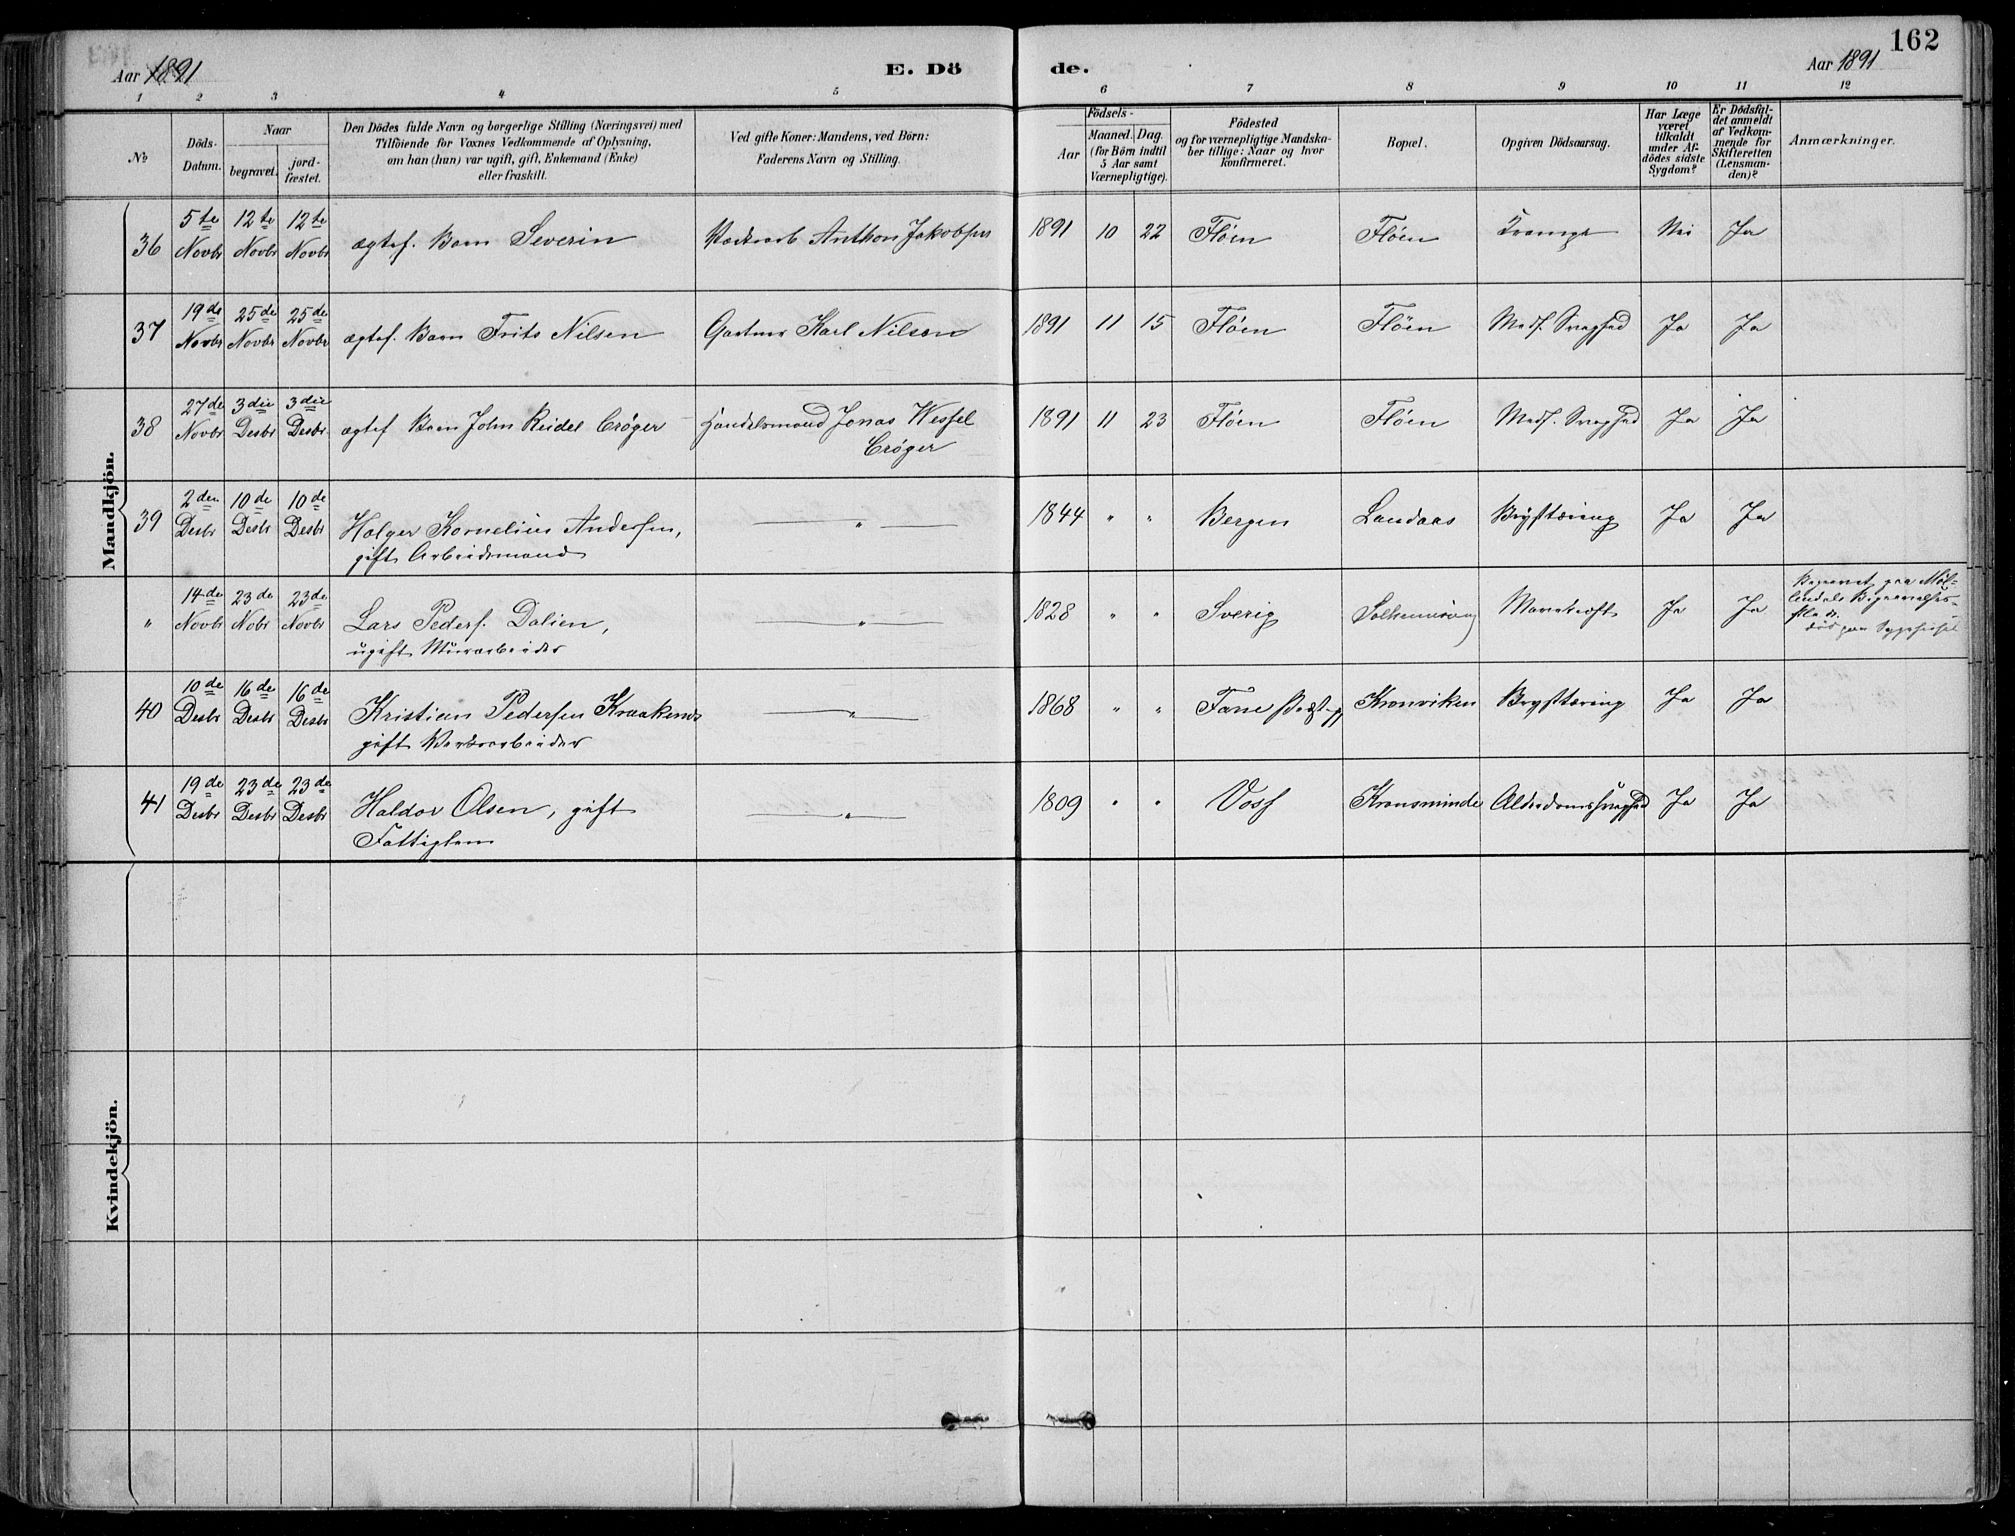 162
Aar 1891
E. Dö
de.
Aar 1891
1 2 3 4 5 6 7 8 9 10 11 12
No
Döds-
Datum.
Naar
begravet.
jord-
fæstet.
Den Dödes fulde Navn og borgerlige Stilling (Næringsvei) med
Tilföiende for Voxnes Vedkommende af Oplysning,
om han (hun) var ugift, gift, Enkemand (Enke)
eller fraskilt.
Ved gifte Koner: Mandens, ved Börn:
Faderens Navn og Stilling.
Födsels-
Aar
Maaned. Dag.
(for Börn indtil
5 Aar samt
Værnepligtige).
Födested
og for værnepligtige Mandska-
ber tillige: Naar og hvor
konfirmeret.
Bopæl.
Opgiven Dödsaarsag.
Har Læge
været
tilkaldt
under Af-
dödes sidste
Sygdom?
Er Dödsfal-
det anmeldt
af Vedkom-
mende for
Skifteretten
(Lensman-
den)?
Anmærkninger.
Mandkjön.
36 5te Novbr 12te Novbr 12te Novbr ægtef. Barn Severin Anthon Jakobsen 1891 10 22 Flöen Flöen Krampe Nei Ja
37 19de Novbr 25de Novbr 25de Novbr ægtef. Barn Frits Nilsen Gartner Karl Nilsen 1891 11 15 Flöen Flöen Medf. Svaghed Ja Ja
38 27de Novbr 3die Desbr 3die Desbr ægtef Barn John Reidel Cröger Handelsmand Jonas Wessel
Cröger 1891 11 23 Flöen Flöen Medf. Svaghed Ja Ja
39 2den Desbr 10de Desbr 10de Desbr Holger Kornelius Andersen,
gift Arbeidsmand " 1844 " " Bergen Landaas Brystæring Ja Ja
" 14de Novbr 23de Nobr 23de Novbr Lars Peders. Dalien,
ugift Murarbeider " 1828 " " Sverig Mavekræft Ja Ja Begravet paa Möl-
lendals Begravelses-
plads.
död paa Sygehuset
40 10de Desbr 16de Desbr 16de Desbr Kristian Pedersen Kraakenes
gift Værksarbeider " 1868 " " Fane Kronviken Brystæring Ja Ja
41 19de Desbr 23de Desbr 23de Desbr Haldor Olsen, gift
Fattiglem " 1809 " " Voss Kronsminde Alderdomssvaghed Ja Ja
Kvindekjön.